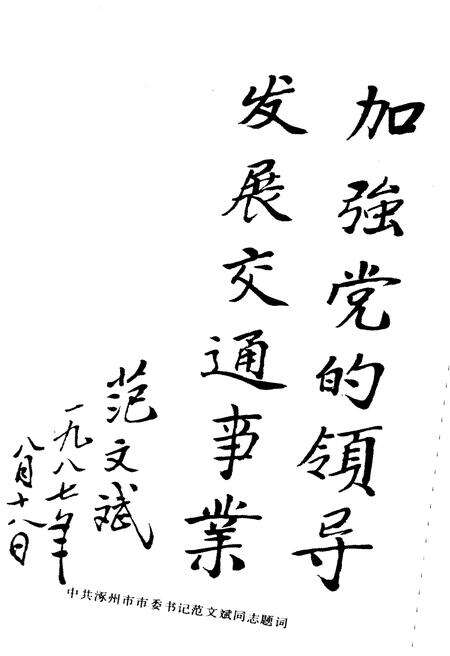 加強党的領导
发展交通事業
范文斌
一九八七年
八月十八日
中共涿州市市委书记范文斌同志题词